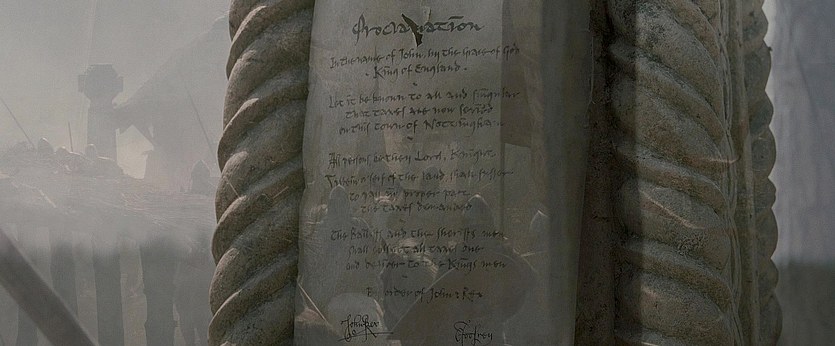 Proclamation
In the name of John, by the Grace of God
· King of England ·
Let it be known to all and singular
that taxes are now levied
on this town of Nottingham
All persons be they Lord, Knight
of the land shall
to pay proper part
the taxes demanded
The Bailiffs and the Sheriffs men
shall collect all taxes due
and deliver to the Kings men
By order of John Rex
John Rex
Godfrey